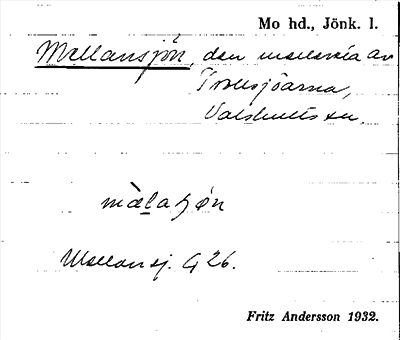 Mo hd., Jönk. l.
Mellansjön, den mellersta av
Trollsjöarna,
Valshults ku
mɛ̀laʂøn
Mellansj. G 26.
Fritz Andersson 1932.